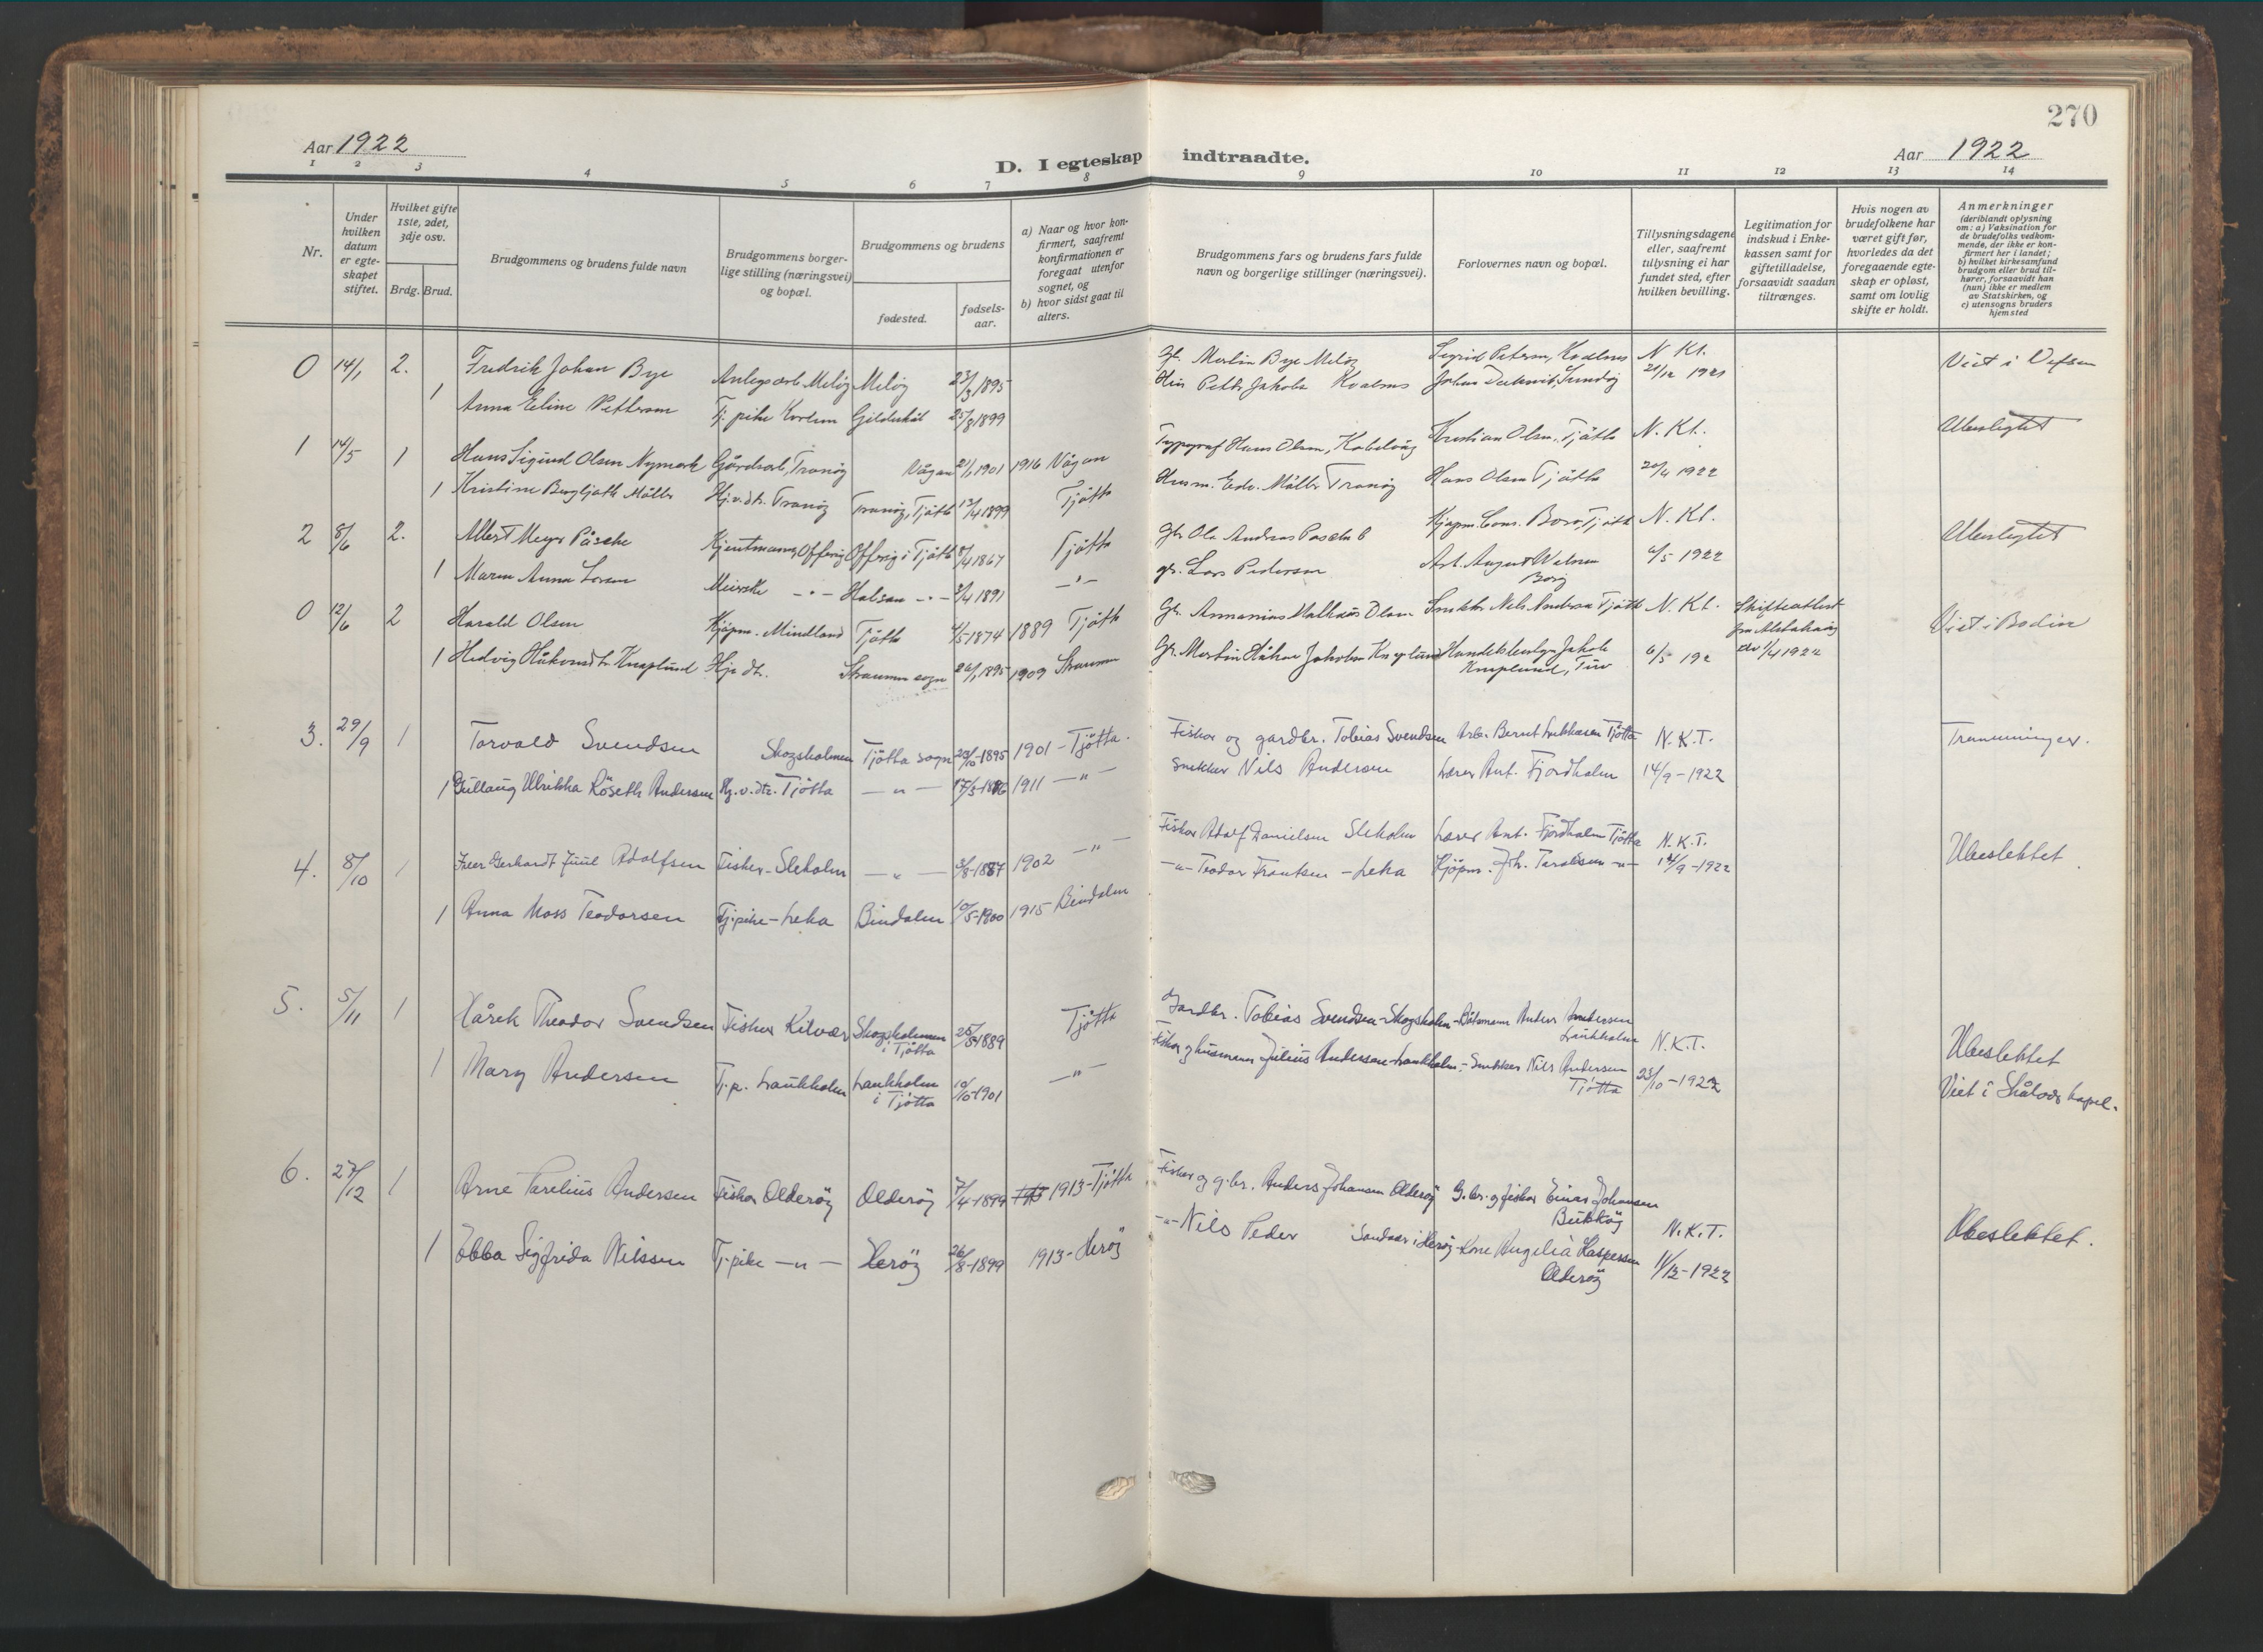 270
Aar 1922
D. I egteskap indtraadte.
Aar 1922
1 2 3 4 5 6 7 8 9 10 11 12 13 14
Nr.
Under hvilken datum er egteskapet stiftet.
Hvilket gifte 1ste, 2det, 3dje osv.
Brdg. Brud.
Brudgommens og brudens fulde navn
Brudgommens borgerlige stilling (næringsvei) og bopæl.
Brudgommens og brudens
fødested.
fødsels-aar.
a) Naar og hvor konfirmert, saafremt konfirmationen er foregaat utenfor sognet, og
b) hvor sidst gaat til alters.
Brudgommens fars og brudens fars fulde navn og borgerlige stillinger (næringsvei).
Forlovernes navn og bopæl.
Tillysningsdagene eller, saafremt tillysning ei har fundet sted, efter hvilken bevilling.
Legitimation for indskud i Enkekassen samt for giftetilladelse, forsaavidt saadan tiltrænges.
Hvis nogen av brudefolkene har været gift før, hvorledes da det foregaaende egteskap er opløst, samt om lovlig skifte er holdt.
Anmerkninger
(deriblandt oplysning om: a) Vaksination for de brudefolks vedkommende, der ikke er konfirmert her i landet; b) hvilket kirkesamfund brudgom eller brud tilhører, forsaavidt han (hun) ikke er medlem av Statskirken, og c) utensogns bruders hjemsted
0 14/1 2. Fredrik Johan Bye Meløy Meløy 23/3 1895 Bye Meløy N. Kt. Viet i Vefsen
1 Anna Eline Pettersen Tj. pike Gildeskål 25/8 1899 21/12 1921
1 14/5 1 Hans Sigurd Olsen Nymark Gårdsarb. Tranöy Vågan 21/1 1901 1916 Vågan Typograf Hans Olsen, Kabelvåg Kristian Olsen, Tjötta N. Kt. Ubeslegtet
1 Kristine Bergljoth Möller Hj.v.dtr. Tranöy Tranöy, Tjötta 13/4 1899 Tjötta Husm. Edv. Möller Tranöy Hans Olsen Tjötta 20/4 1922
2 8/6 2. Albert Meyer Påsche Offersöy i Tjötta 8/4 1867 Tjötta Gbr. Ole Andreas N. Kt. Ubeslegtet
1 Maren Anna Larsen Meierske - " - - " - 2/4 1891 - " - gbr. Lars Pedersen Arb. August 6/5 1922
0 12/6 2 Harald Olsen Kjöpm. Mindland Tjötta 4/5-1874 1889 Tjötta Gbr. Annanias Mathæus Olsen Snekker Nils Andersen Tjötta N. Kt. Skifteattest fra Alstahaug av 1/4 1922 Viet i Bodin
1 Hedvig Håkonsdtr. Knaplund Hj. dtr. Straumen sogn 26/1 1895 1909 Straumen Gbr. Martin Håkon Jakobsen Knaplund Jakob Knaplund, Tuv 6/5 192
3. 29/9 1 Torvald Svendsen Skogsholmen Tjötta sogn 20/10-1895 1901 - Tjötta. Fisker og gardbr. Tobias Svendsen Arb. Bernt Tjötta N.K.T. Tremenninger.
1 Gullaug Ulrikka Röseth Andersen Hj.v.dtr. Tjötta - " - 17/5-1896 1911 - " - Snekker Nils Andersen Lærer Ant. Fjordholm 14/9-1922
4. 8/10 1 Gerhardt Juul Adolfsen Fisker - Sleholm - " - 3/8-1887 1902 - " - Fisker Adolf Danielsen Sleholm Lærer Ant. Fjordholm Tjötta N.K.T. Ubeslektet
1 Anna Moss Teodorsen Tj.pike - Leka Bindalen 10/5-1900 1915 Bindalen - " - Teodor Frantsen - Leka Kjöpm. Joh. - " - 14/9-1922
5. 5/11 1 Hårek Theodor Svendsen Fisker Kilvær Skogsholmen i Tjötta 25/5-1889 Tjötta Gardbr. Tobias Svendsen - Skogsholm - Båtsmann Anders Andersen Laukholm N.K.T. Ubeslektet
1 Mary Andersen Tj.p. Laukholm Laukholm i Tjötta 10/10-1901 - " - Fisker og husmann Julius Andersen - Laukholm - Snekker Nils Andersen Tjötta 23/10-1922 Viet i Skålvær kapel.
6. 27/12 1 Arne Parelius Andersen Fisker Olderöy Olderöy 7/4-1899 1913 - Tjötta Fisker og g.br. Anders Johansen Olderöy G.br. og fisker Einar Johansen Bukköy N.K.T. Ubeslektet.
1 Ebba Sigfrida Nilssen Tj.pike - " - Heröy 26/8-1899 1913 - Heröy - " - Nils Peder Sandvær i Heröy - Kone Angelia Kaspersen Olderöy 11/12-1922